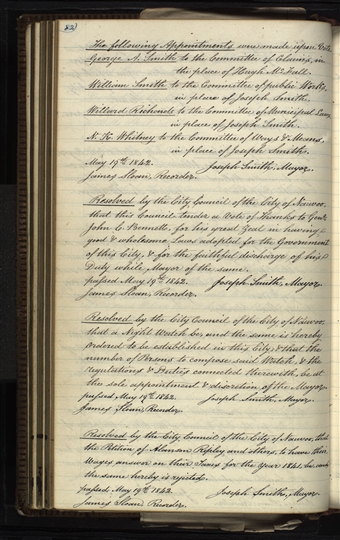 82
The following Appointments were made upon
George A. Smith to the Committee of Claims, in
the place of Hugh McFall.
William Smith to the Committee of public Works,
in place of Joseph Smith.
Willard Richards to the Committee of Municipal Laws,
in place of Joseph Smith.
N. K. Whitney to the Committee of Ways & Means,
in place of Joseph Smith.
May 19th 1842. Joseph Smith, Mayor.
James Sloan, Recorder.
Resolved by the City Council of the City of Nauvoo,
that this Council tender a Vote of Thanks to Genl.
John C. Bennett, for his great Zeal in having
good & wholesome Laws adopted for the Government
of this City, & for the faithful discharge of his
Duty while Mayor of the same.
passed May 19th 1842. Joseph Smith, Mayor.
James Sloan, Recorder.
Resolved by the City Council of the City of Nauvoo,
that a Night Watch be, and the same is hereby
ordered to be established in this City, & that the
number of Persons to compose said Watch, & the
regulations & Duties connected therewith, be at
the sole appointment & discretion of the Mayor.
passed May 19th 1842. Joseph Smith, Mayor.
James Sloan, Recorder.
Resolved by the City Council of the City of Nauvoo, that
the Petition of Alanson Ripley and others, to have their
Wages answer in their Taxes for the Year 1841, be, and
the same hereby is rejected.
passed May 19th 1842. Joseph Smith, Mayor.
James Sloan, Recorder.